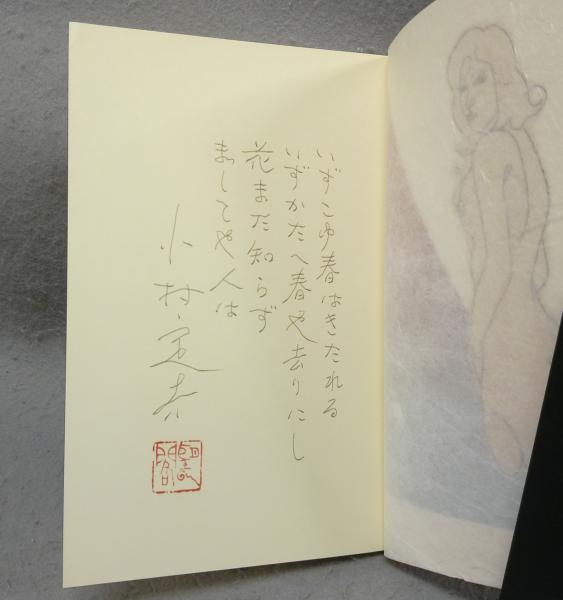 いずこゆ春はきたれる
いずかたへ春や去りにし
花まだ知らず
ましてや人は
小村定吉